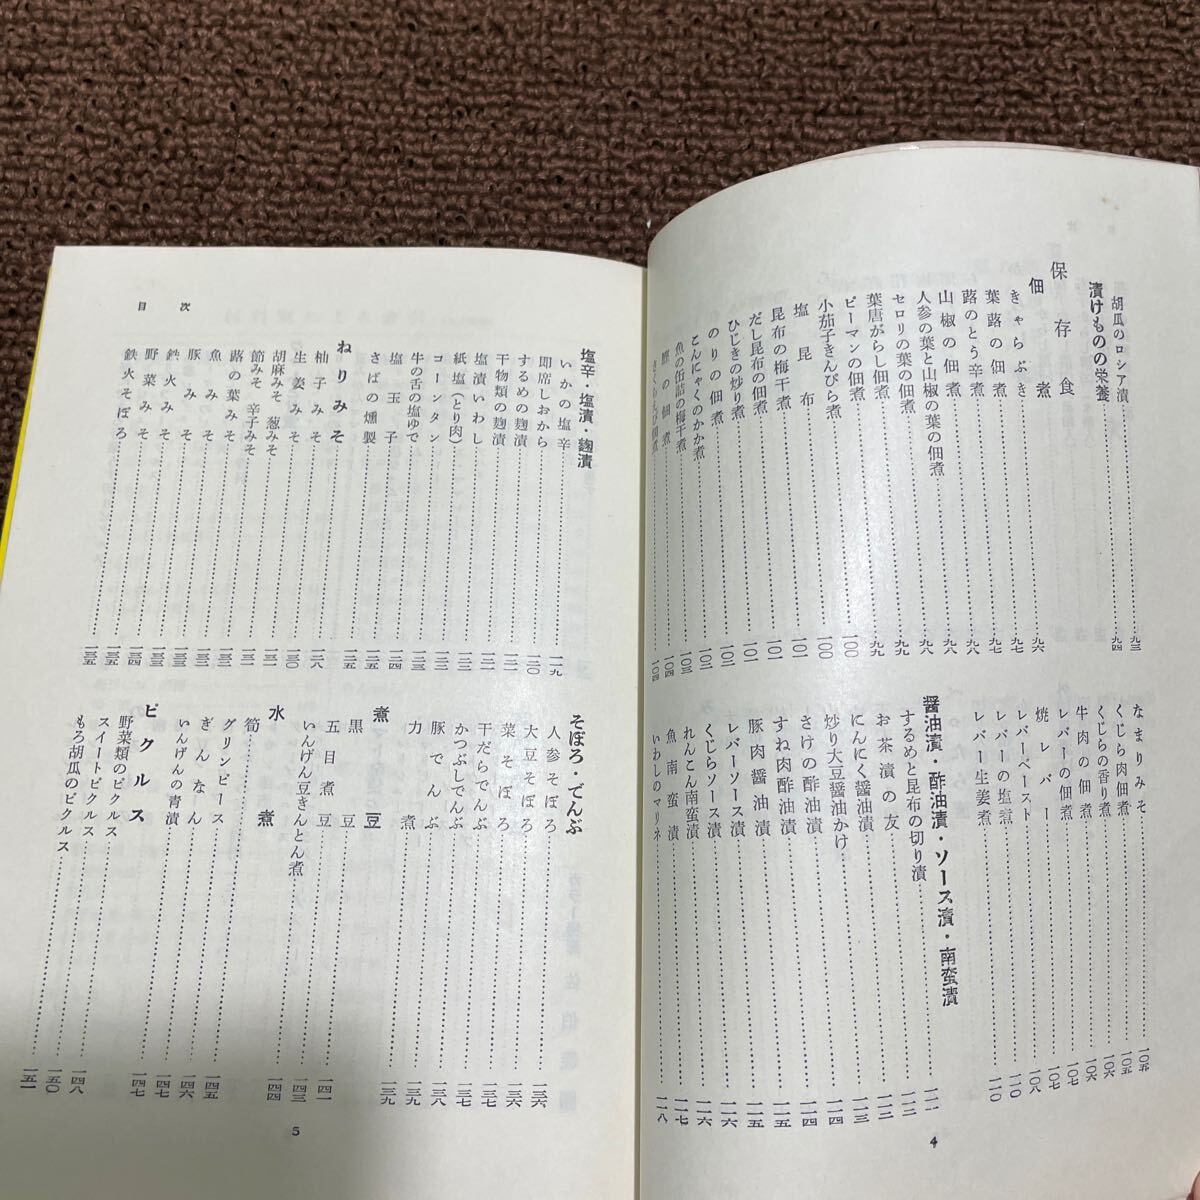 胡瓜のロシア漬……九三
漬けものの栄養……九四
保存食
佃煮……九六
きゃらぶき……九七
葉蕗の佃煮……九七
蕗のとう辛煮……九八
山椒の佃煮……九八
人参の葉と山椒の葉の佃煮……九八
セロリの葉の佃煮……九九
葉唐がらし佃煮……九九
ピーマンの佃煮……一〇〇
小茄子きんぴら煮……一〇〇
塩昆布……一〇〇
昆布の梅干煮……一〇一
だし昆布の佃煮……一〇一
ひじきの炒り煮……一〇二
のりの佃煮……一〇二
こんにゃくのかか煮……一〇三
魚の缶詰の梅干煮……一〇三
なまりみそ……一〇五
くじら肉佃煮……一〇五
くじらの香り煮……一〇六
牛肉の佃煮……一〇六
レバーの佃煮……一〇七
焼レバー……一〇七
レバーペースト……一〇八
レバーの塩煮……一一〇
レバー生姜煮……一一〇
醤油漬・酢油漬・ソース漬・南蛮漬
するめと昆布の切り漬……一一一
お茶漬の友……一一二
にんにく醤油漬……一一二
炒り大豆醤油かけ……一一三
さけの酢油漬……一一四
すね肉酢油漬……一一五
豚肉醤油漬……一一五
レバーソース漬……一一六
くじらソース漬……一一六
れんこん南蛮漬……一一七
魚南蛮漬……一一七
いわしのマリネ……一一八
4
目次
塩辛・塩漬・麹漬
いかの塩辛……一一九
即席しおから……一二〇
するめの麹漬……一二一
干物類の麹漬……一二一
塩漬いわし……一二二
紙塩(とり肉)……一二二
コーンタン……一二三
牛の舌の塩ゆで……一二三
塩玉子……一二四
さばの燻製……一二五
ねりみそ……一二五
柚子みそ……一二八
生姜みそ……一三〇
胡麻みそ 葱みそ……一三一
節みそ 辛子みそ……一三一
蕗の葉みそ……一三二
魚みそ……一三二
豚みそ……一三三
鉄火みそ……一三三
野菜みそ……一三四
鉄火そぼろ……一三五
そぼろ・でんぶ
人参そぼろ……一三六
大豆そぼろ……一三六
菜そぼろ……一三六
干だらでんぶ……一三七
かつぶしでんぶ……一三七
豚でんぶ……一三八
力煮……一三九
煮豆……一三九
黒豆
五目煮豆……一四一
いんげん豆きんとん煮……一四三
水煮……一四四
筍
グリンピース……一四五
ぎんなん……一四六
いんげんの青漬……一四七
ピクルス……一四七
野菜類のピクルス
スイートピクルス……一四八
もろ胡瓜のピクルス……一五〇
5